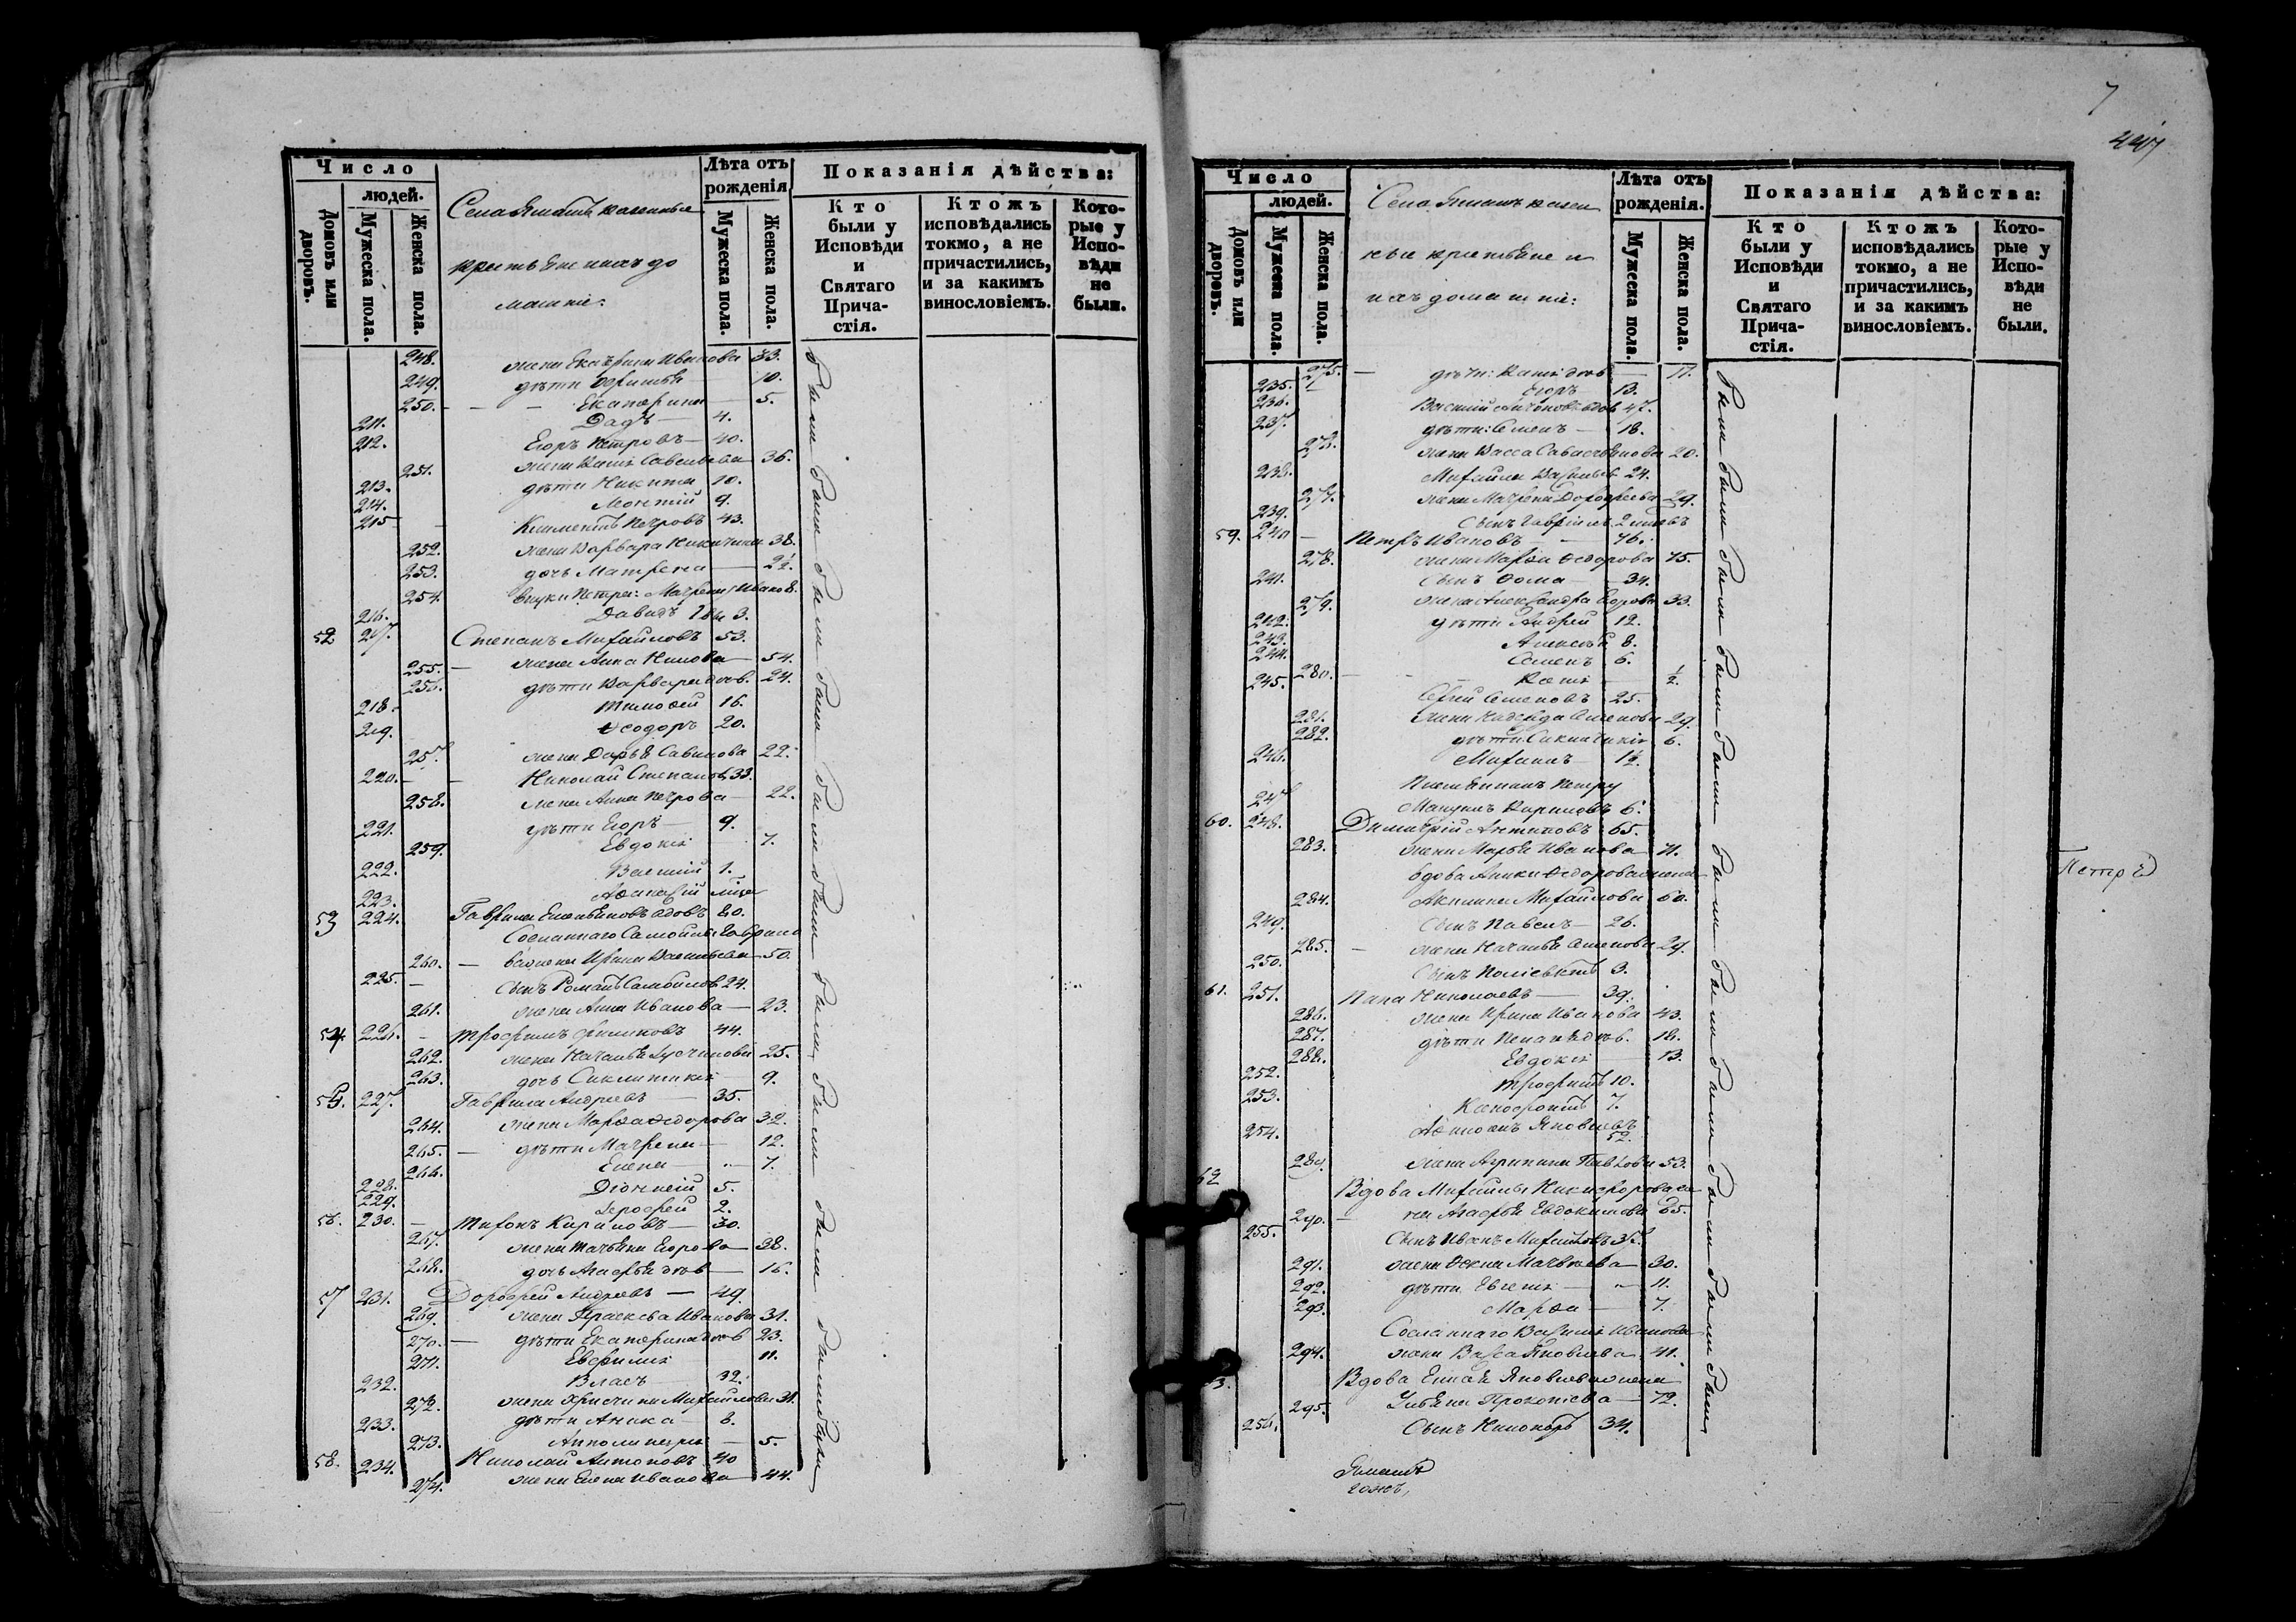 Число
людей.
Домовъ или дворовъ.
Мужеска пола.
Женска пола.
Села казенные
крестьяне и ихъ до
машніе:
Лѣта отъ рожденія
Мужеска пола.
Женска пола.
Показанія дѣйства:
Кто были у Исповѣди и Святаго Причастія.
Ктожъ исповѣдались токмо, а не причастились, и за какимъ винословіемъ.
Которые у Исповѣди не были.
248. жена Екатерина Иванова 33.
249. дѣти 10.
250. Екатерина 5.
211. 4.
212. Егоръ Петровъ 40.
251. жена Савельева 36.
213. дѣти Никита 10.
214. Леонтій 9.
215. Климентъ Петровъ 43.
252. жена Варвара Никитина 38.
253. дочь Матрена 2½.
254. внуки Петра: Матрена Иванов.
216. Давидъ 3.
52 217. Степанъ Михайловъ 53.
255. жена Анна 54.
256. дѣти Варвара 24.
218. Тимофей 16.
219. Ѳеодоръ 20.
257. жена Дарья Савинова 22.
220. Николай Степановъ 33.
258. жена Анна Петрова 22.
221. дѣти Егоръ 9.
259. Евдокія 7.
222. Василій 1.
223. Аѳанасій
53 224. Гаврила Емельяновъ вдовъ 80.
Сосланнаго Самойлы Гаврило
260. ва жена Ирина Васильева 50.
225. сынъ Романъ Самойловъ 24.
261. жена Анна Иванова 23.
54. 226. Трофимъ Филиповъ 44.
262. жена Наталья 25.
263. дочь Синклитикія 9.
55. 227. Гаврила Андреевъ 35.
264. жена Марѳа Ѳедорова 32.
265. дѣти Матрена 12.
266. Елена 7.
228. Діонисій 5.
229. Ерофей 2.
56. 230. Тихонъ Кириловъ 30.
267. жена Татьяна Егорова 38.
268. дочь Агафья 16.
57 231. Дорофей Андреевъ 49.
269. жена Праскева Иванова 31.
270. дѣти Екатерина 23.
271. Евфимія 11.
232. Власъ 32.
272. жена Христина Михайлова 31.
233. дѣти Аника 8.
273. Апполинарія 5.
58. 234. Николай Антоновъ 40
274. жена Елена Иванова 44.
были были были были были были были были были были были
7
447
Число
людей.
Домовъ или дворовъ.
Мужеска пола.
Женска пола.
Села казен
ные крестьяне и
ихъ домашніе:
Лѣта отъ рожденія.
Мужеска пола.
Женска пола.
Показанія дѣйства:
Кто были у Исповѣди и Святаго Причастія.
Ктожъ исповѣдались токмо, а не причастились, и за какимъ винословіемъ.
Которые у Исповѣди не были.
275. дѣти: 17.
235. Егоръ 13.
236. Василій Антоновъ вдов 47.
237. дѣти: Семенъ 18.
276. жена Васса Савастьянова 20.
238. Михайла Васильев 24.
277. жена Матрена Дорофеева 29.
239. сынъ Гавріилъ 2
59. 240 Петръ Ивановъ 76.
278. жена Марѳа Ѳедорова 75.
241. сынъ Ѳома 34.
279. жена Александра Егорова 33.
242. дѣти Андрей 12.
243. Алексѣй 8.
244. Семенъ 6.
280. ½.
245. Сергій Семеновъ 25.
281. жена Надежда Семенова 29.
282. дѣти: Синклитикія 6.
246. Михаилъ 1½.
Племянникъ Петру
247 Мануилъ Кириловъ 6.
60. 248. Димитрій Антиповъ 65.
283. жена Марья Иванова 71.
вдова Аники Ѳедорова жена
284. Акилина Михайлова 60.
249. сынъ Павелъ 26.
285. жена Наталья Семенова 29.
250. сынъ Поліевктъ 3.
61. 251. Николаевъ 39.
286. жена Ирина Иванова 43.
287. дѣти 18.
288. Евдокія 13.
252. Трофимъ 10.
253. Ксенофонтъ 7.
254. Яковлевъ 52.
289. жена Агрипина Павлова 53.
62 Вдова Михайлы Никифорова же
290. на Агафья Евдокимова 65.
255. сынъ Иванъ Михайловъ 37.
291. жена Матвѣева 30.
292. дѣти Евгенія 11.
293. Марѳа 7.
Сосланнаго Василія Иванова
294. жена Яковлева 41.
63. Вдова Яковлева жена
295. Ульяна Прокопіева 72.
256. сынъ Никаноръ 34.
были были были были были были были были были были были были
Петръ